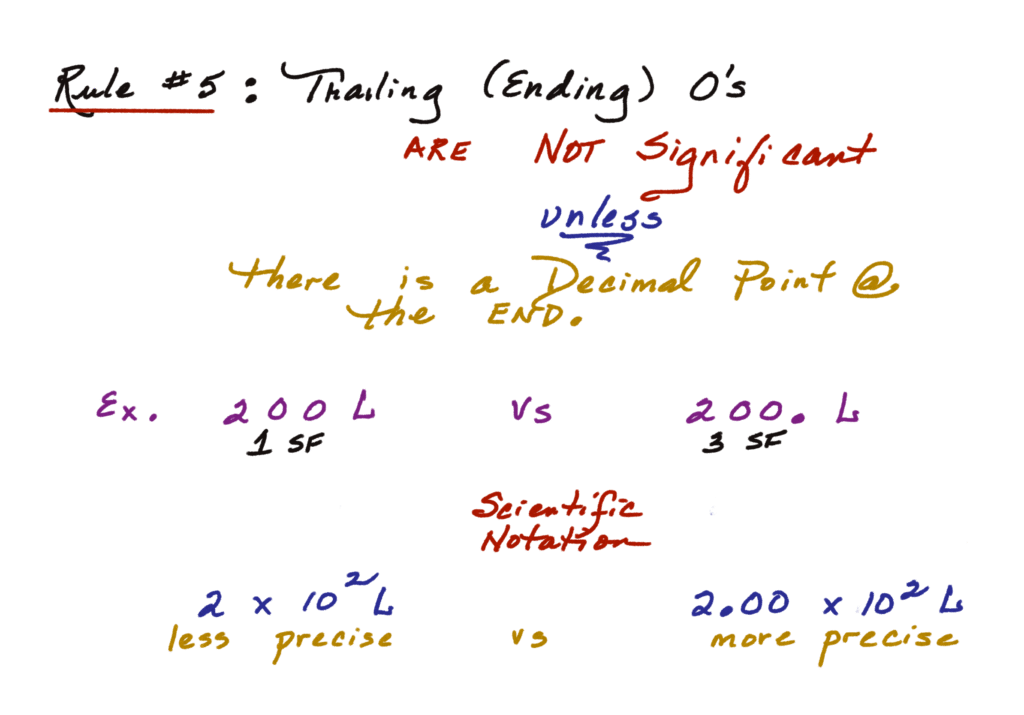 Rule #5: Trailing (Ending) 0's
ARE NOT Significant
unless
there is a Decimal Point @
the END.
Ex. 200 L vs 200. L
1 SF 3 SF
Scientific
Notation
2 x 10² L 2.00 x 10² L
less precise vs more precise